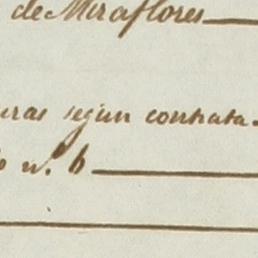 de Miraflores
uras segun contrata.
o n.º 6